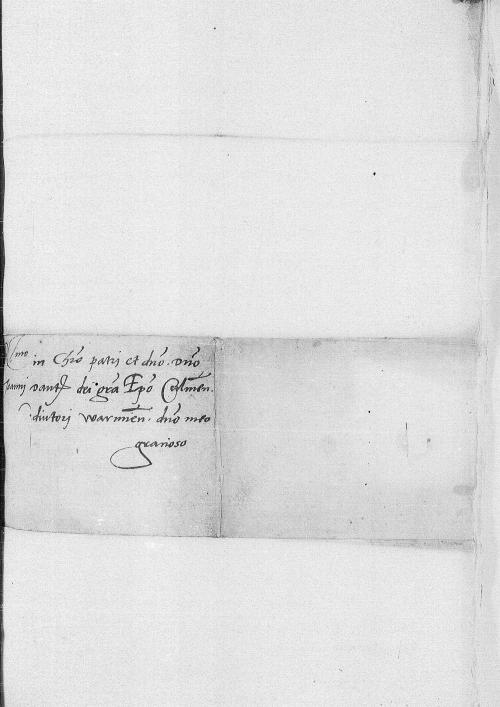 R^mo in Chr̃o patri et dño. Dño
Joanni Dantis[...] dei gr̃a Ep̃o Culmeñ.
[...]diutori Warmieñ. dño meo
gratioso